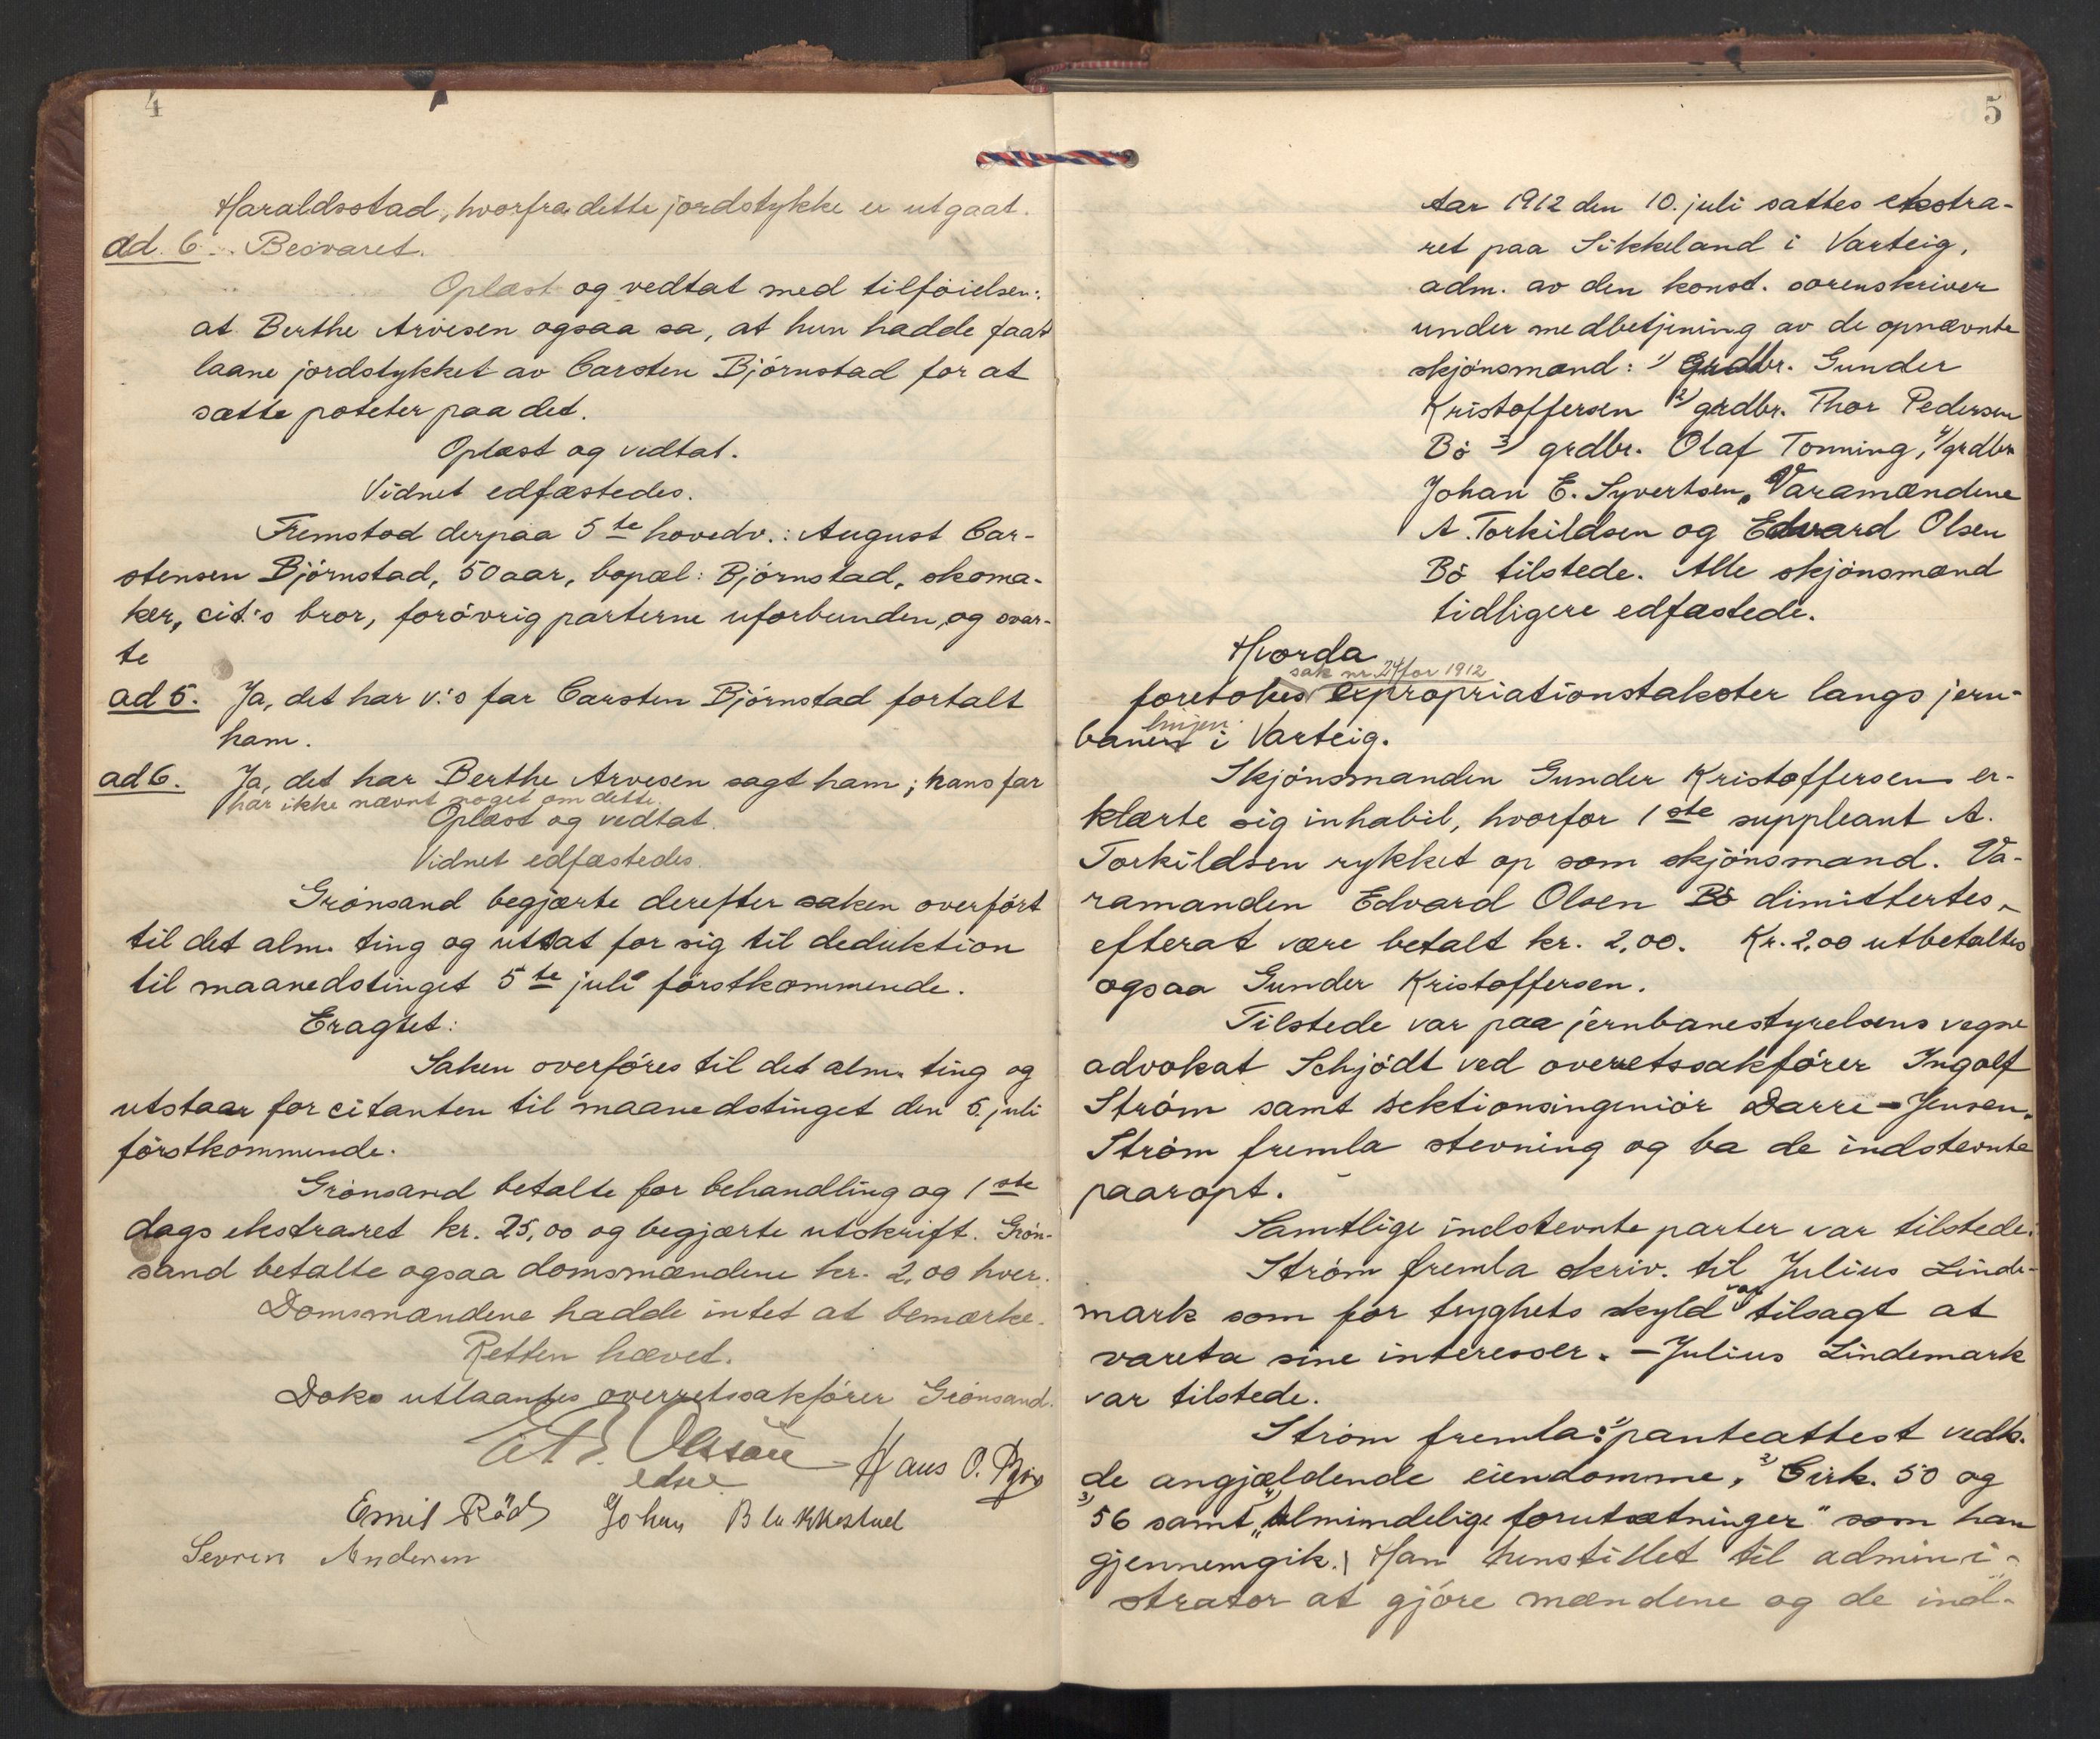 4
Haraldsstad, hvorfra dette jordstykke er utgaat.
ad. 6. Besvaret.
Oplæst og vedtat med tilføielsen:
at Berthe Arvesen ogsaa sa, at hun hadde faat
laane jordstykket av Carsten Bjørnstad for at
sætte poteter paa det.
Oplæst og vedtat.
Vidnet edfæstedes.
Fremstod derpaa 5te hovedv.: August Car-
stensen Bjørnstad, 50 aar, bopæl: Bjørnstad, skoma-
ker, cit:s bror, forøvrig parterne uforbunden, og svar-
te
ad 5. Ja, det har v:s far Carsten Bjørnstad fortalt
ham.
ad 6. Ja, det har Berthe Arvesen sagt ham; hans far
har ikke nævnt noget om dette.
Oplæst og vedtat.
Vidnet edfæstedes.
Grønsand begjærte derefter saken overført
til det alm. ting og utsat for sig til deduktion
til maanedstinget 5te juli førstkommende.
Eragtet:
Saken overføres til det alm. ting og
utstaar for citanten til maanedstinget den 5. juli
førstkommende.
Grønsand betalte for behandling og 1ste
dags ekstraret kr. 25,00 og begjærte utskrift. Grøn-
sand betalte ogsaa domsmændene kr. 2,00 hver.
Domsmændene hadde intet at bemærke.
Retten hævet.
Dok. utlaantes overretssakfører Grønsand.
Olsson
Hans O.
Emil Röd Johan
Andersen
5
Aar 1912 den 10. juli sattes ekstra-
ret paa Sikkeland i Varteig,
adm. av den konst. sorenskriver
under medbetjening av de opnævnte
skjønsmænd: 1) Grdbr. Gunder
Kristoffersen 2) grdbr. Thor Pedersen
Bö 3) grdbr. Olaf Tonning, 4) grdbr.
Johan E. Syvertsen. Varamændene
A. Torkildsen og Edvard Olsen
Bö tilstede. Alle skjønsmænd
tidligere edfæstede.
Hvorda
sak nr. 24 for 1912
foretokes expropriationstakster langs jern-
linjen
banen i Varteig.
Skjønsmanden Gunder Kristoffersen er-
klærte sig inhabil, hvorfor 1ste suppleant A.
Torkildsen rykket op som skjønsmand. Va-
ramanden Edvard Olsen Bö dimittertes,
efterat være betalt kr. 2,00. Kr. 2,00 utbetaltes
ogsaa Gunder Kristoffersen.
Tilstede var paa jernbanestyrelsens vegne
advokat Schjødt ved overretssakfører Ingolf
Strøm samt sektionsingeniør Darre-Jensen.
Strøm fremla stevning og ba de indstevnte
paaropt.
Samtlige indstevnte parter var tilstede.
Strøm fremla skriv. til Julius Linde-
mark som for tryghets skyld var tilsagt at
vareta sine interesser. - Julius Lindemark
var tilstede.
Strøm fremla: 1) panteattest vedk.
de angjældende eiendomme, 2) Cirk. 50 og
3) 56 samt 4) "Almindelige forutsætninger" som han
gjennemgik. Han henstillet til admini-
strator at gjøre mændene og de ind-